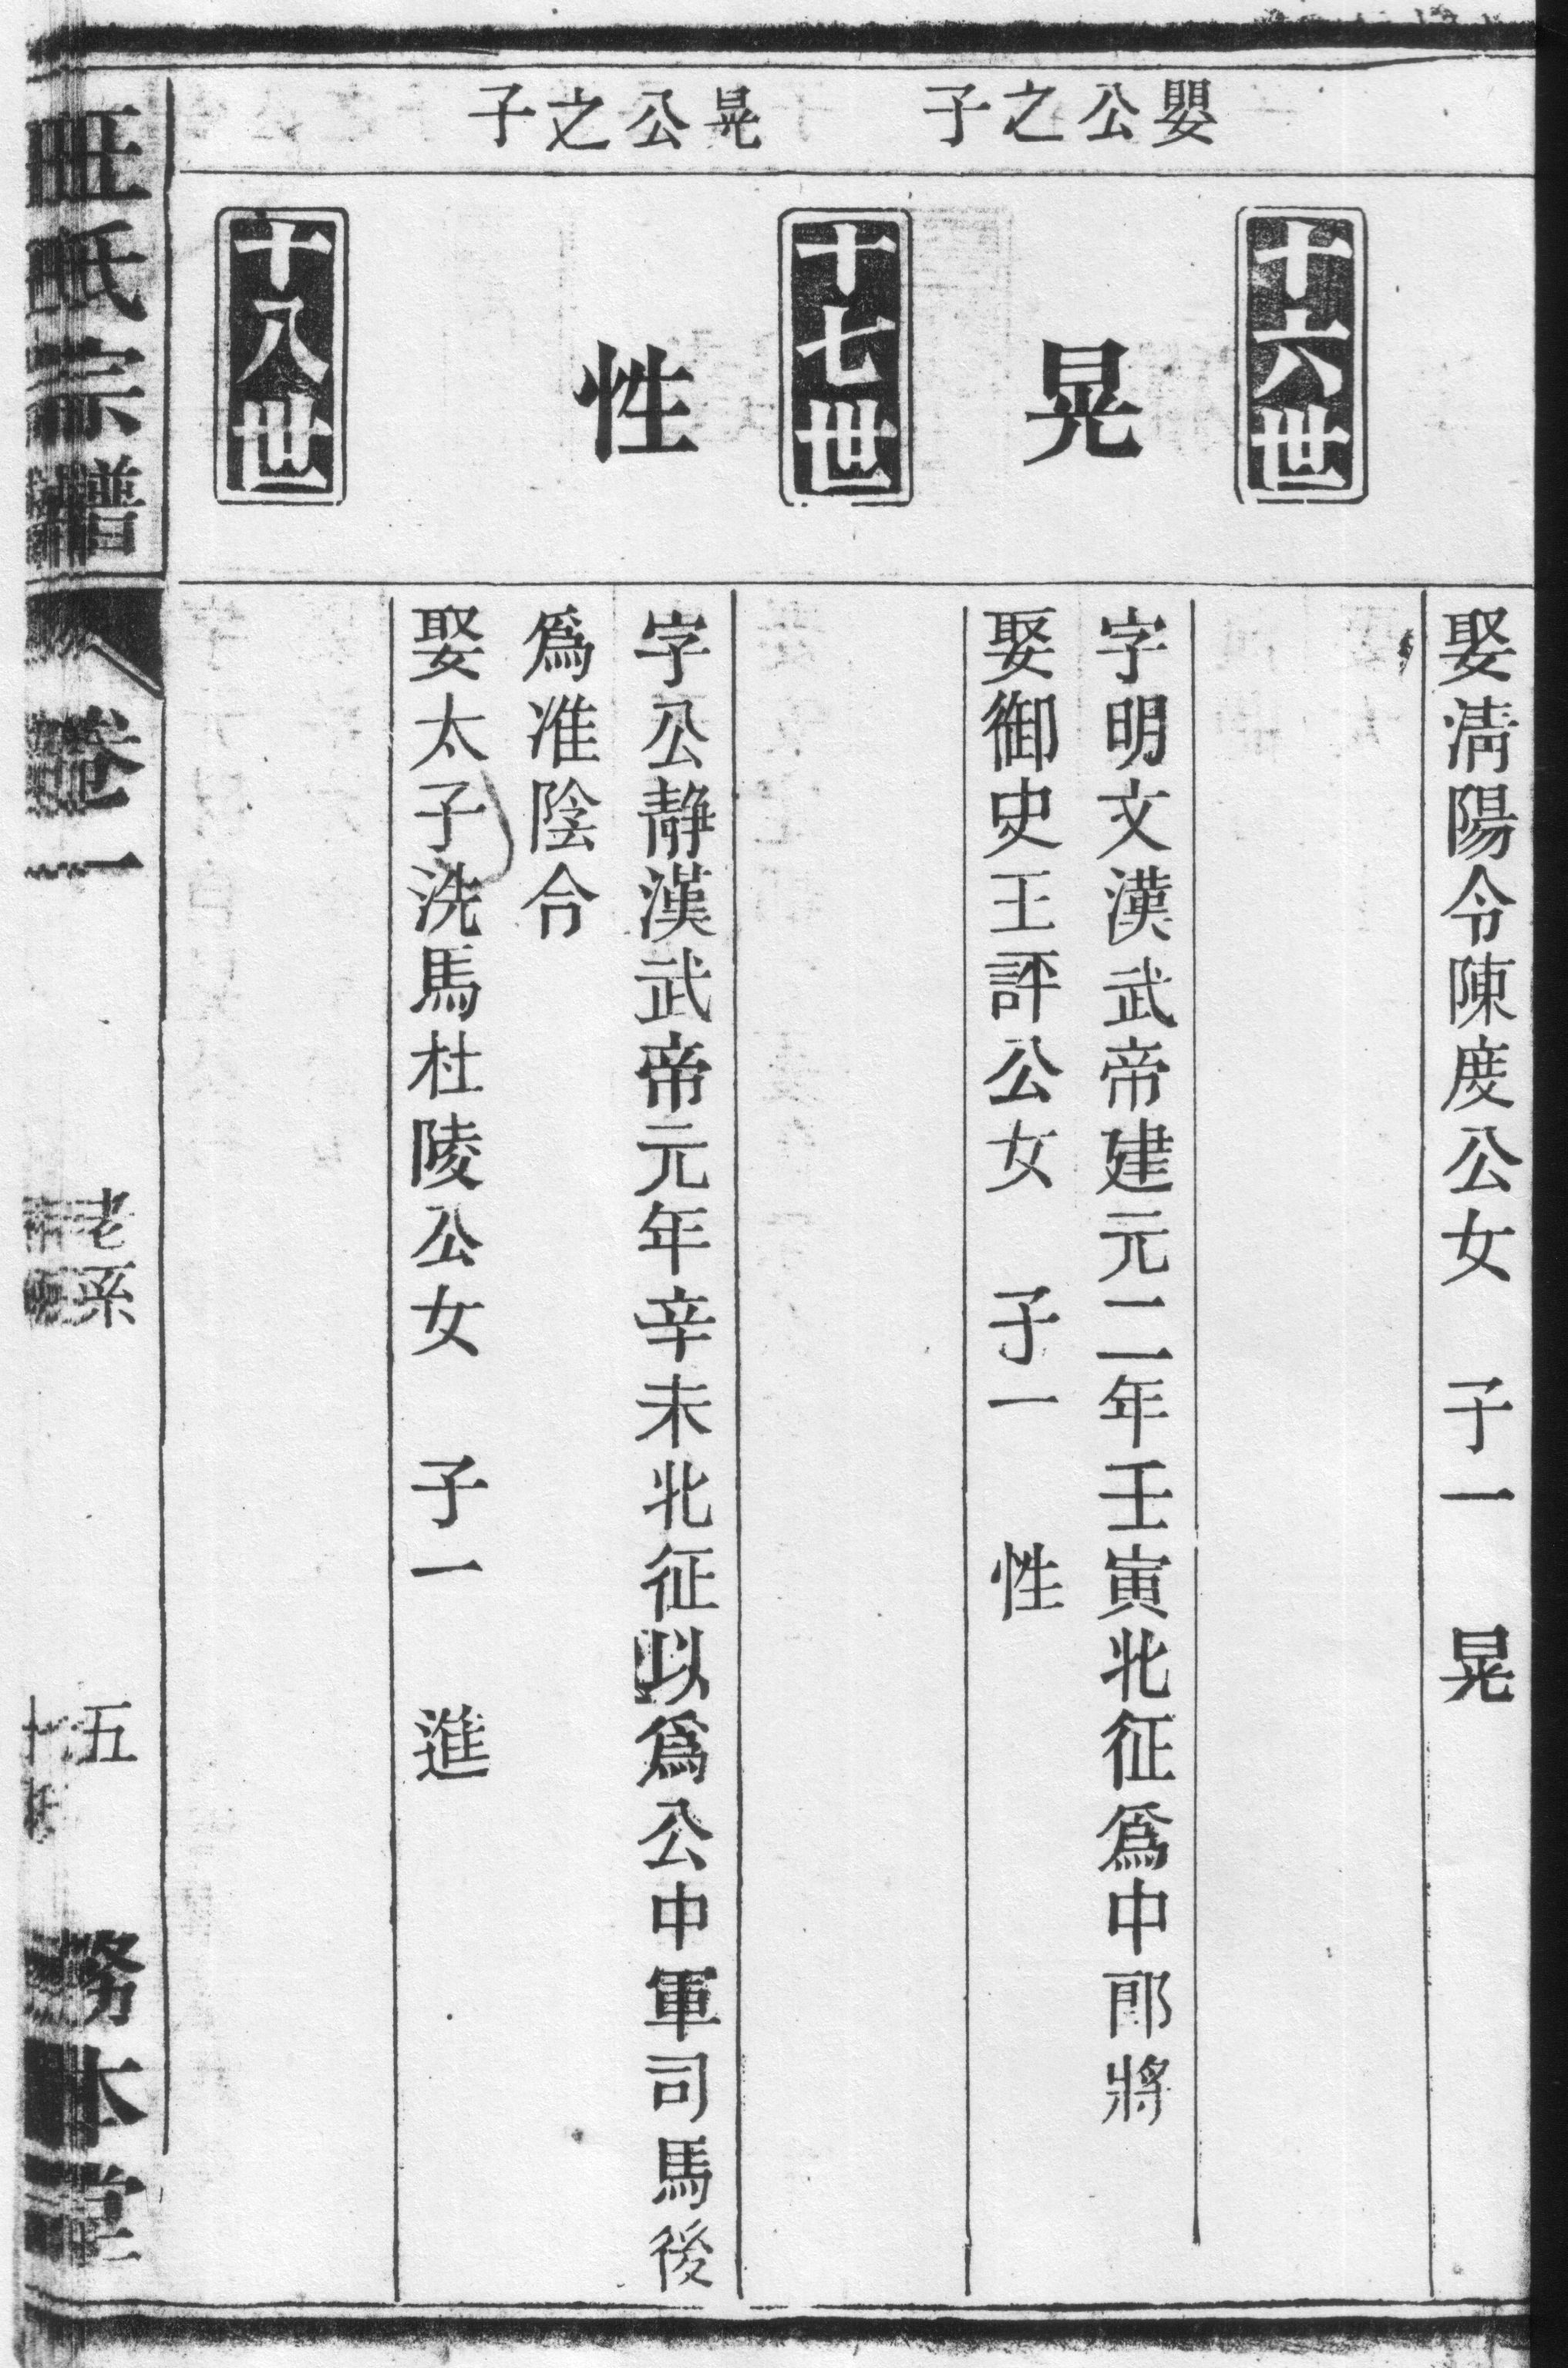 娶淸陽令陳度公女 子一 晃
十六世
嬰公之子
晃
字明文漢武帝建元二年壬寅北征爲中郎將
娶御史王評公女 子一 性
十七世
晃公之子
性
字公靜漢武帝元年辛未北征以爲公中軍司馬後
爲准陰令
娶太子洗馬杜陵公女 子一 進
十八世
氏宗譜
卷一
老系
五
務本堂